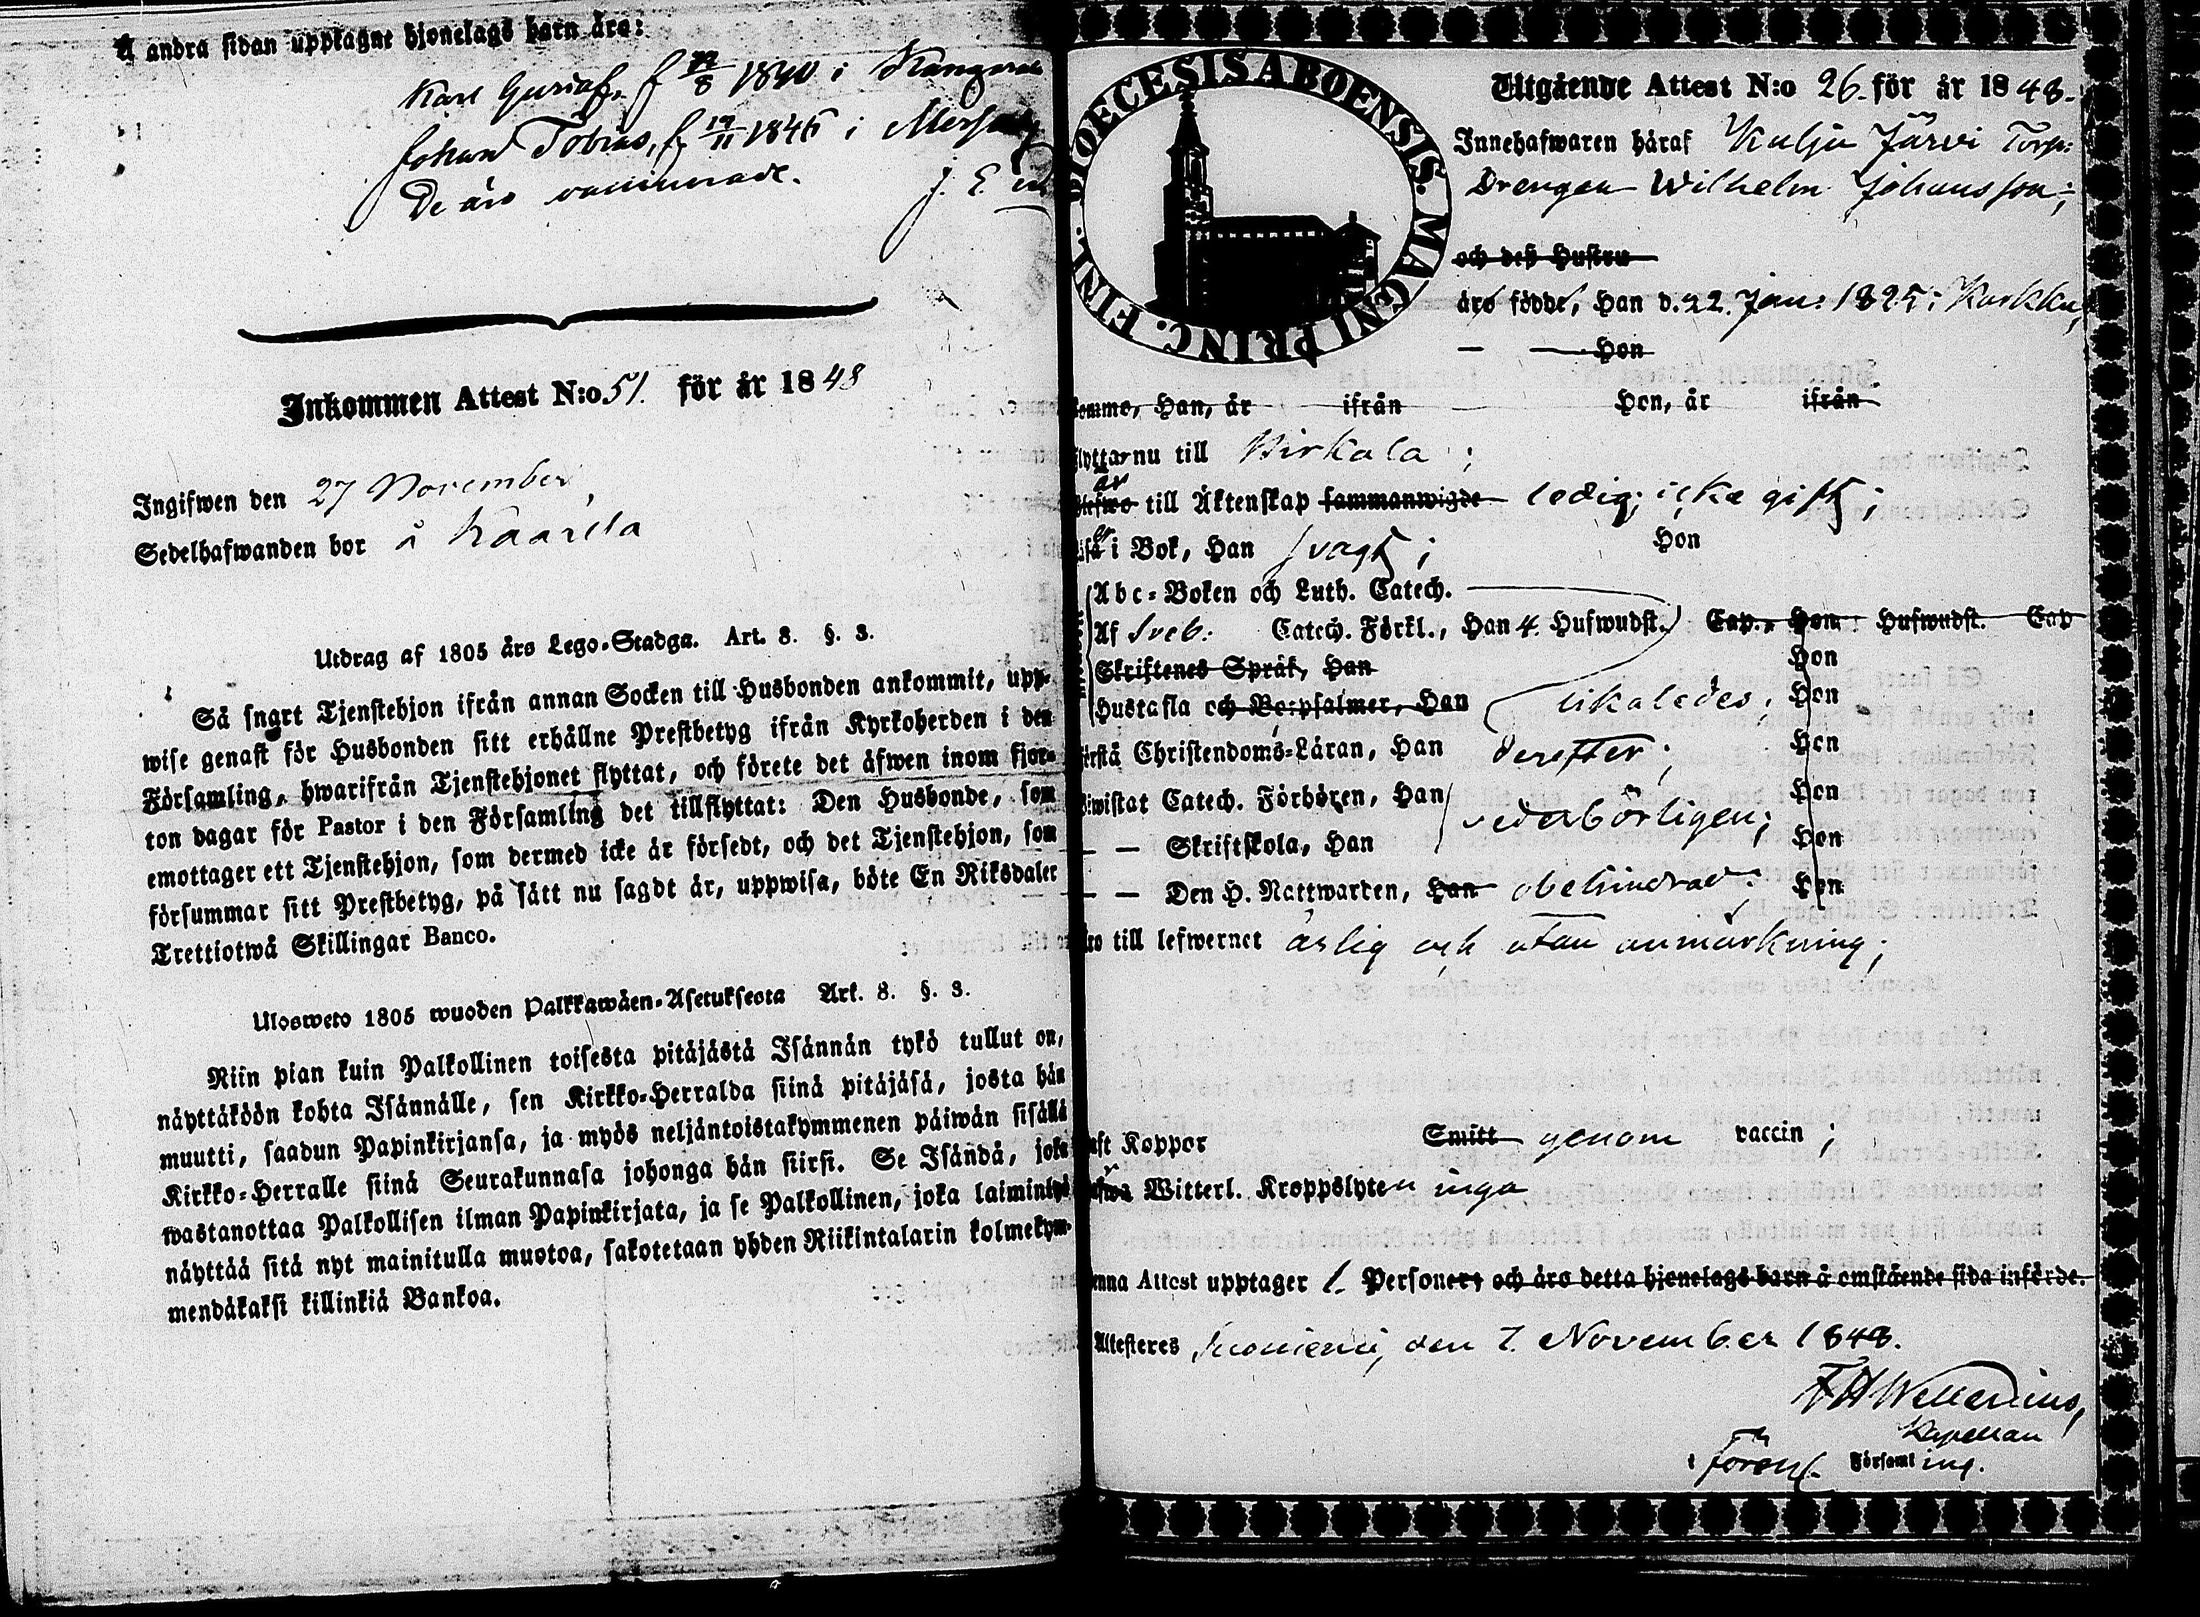 Å andra sidan upptagne hjonelags barn äro:
Karl Gustaf, f. 22/8 1840 i
Johan Tobias, f. 19/11 1845 i
De äro vaccinerade. J. E.
Inkommen Attest N:o 51. för år 1848
Ingifwen den 27 November
Sedelhafwanden bor å Kaarila
Utdrag af 1805 års Lego-Stadga. Art. 8. §. 3.
Så snart Tjenstehjon ifrån annan Socken till Husbonden ankommit, upp-
wise genast för Husbonden sitt erhållne Prestbetyg ifrån Kyrkoherden i den
Församling, hwarifrån Tjenstehjonet flyttat, och förete det äfwen inom fjor-
ton dagar för Pastor i den Församling det tillflyttat: Den Husbonde, som
emottager ett Tjenstehjon, som dermed icke är försedt, och det Tjenstehjon, som
försummar sitt Prestbetyg, på sätt nu sagdt är, uppwisa, böte En Riksdaler
Trettiotwå Skillingar Banco.
Ulosweto 1805 wuoden Palkkawäen-Asetuksesta Art. 8. §. 3.
Niin pian kuin Palkollinen toisesta pitäjästä Isännän tykö tullut on,
näyttäköön kohta Isännälle, sen Kirkko-Herralda siinä pitäjäsä, josta hän
muutti, saadun Papinkirjansa, ja myös neljäntoistakymmenen päiwän sisällä
Kirkko-Herralle siinä Seurakunnasa johonga hän siirsi. Se Isändä, joka
wastanottaa Palkollisen ilman Papinkirjata, ja se Palkollinen, joka laiminlyö
näyttää sitä nyt mainitulla muotoa, sakotetaan yhden Riikintalarin kolmekym-
mendäkaksi killinkiä Bankoa.
DIOECESIS ABOENSIS. MAGNI PRINC. FINL.
Utgående Attest N:o 26. för år 1848.
Innehafwaren häraf Kulju Järvi Torp:
Drengen Wilhelm Johansson;
och deß Hustru
äro födde, Han d. 22. Jan. 1825 i Karkku,
— — Hon
komme, Han, år ifrån — Hon, år ifrån
flyttar nu till Birkala;
är till Äktenskap sammanwigde ledig; icke gift;
i Bok, Han svagt; Hon
Abc-Boken och Luth. Catech.
Af Sveb: Catech. Förkl., Han 4. Hufwudst. Cap., Hon Hufwudst. Cap
Skriftenes Språk, Han Hon
Hustafla och Botpsalmer, Han likaledes; Hon
Förstå Christendoms-Läran, Han derefter; Hon
Biwistat Catech. Förhören, Han Hon
vederbörligen;
— — Skriftskola, Han Hon
— — Den H. Nattwarden, Han obehindrad; Hon
äro till lefwernet ärlig och utan anmärkning;
haft Koppor Smitt genom vaccin;
Witterl. Kroppslyten inga
Denna Attest upptager 1. Personer, och äro detta hjonelags barn å omstående sida införde.
Attesteres Suoniemi, den 7. November 1848.
Kapellan
i Församling.